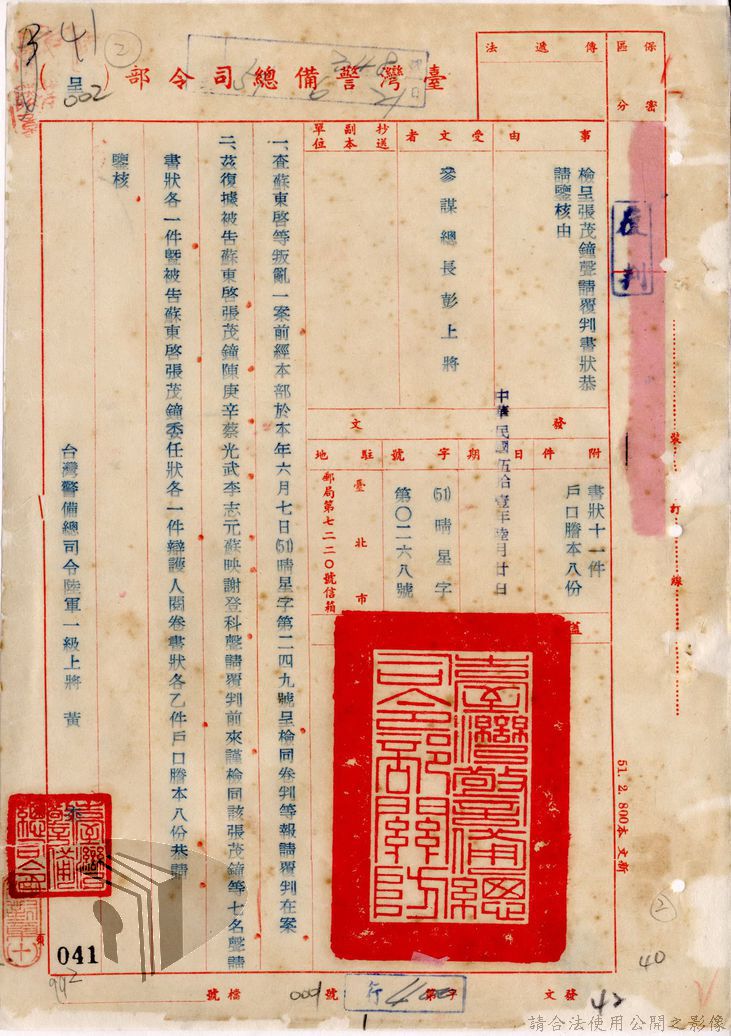 保密
區分
傳遞法
臺灣警備總司令部(呈)
事由
檢呈張茂鐘聲請覆判書狀恭
請鑒核由
覆判
受文者
參謀總長彭上將
抄送
副本
單位
發文
附件
書狀十一件
戶口謄本八份
日期
中華民國伍拾壹年陸月廿日
字號
(51)晴星字
第〇二六八號
駐地
臺北市
郵局第七二二〇號信箱
臺灣警備總
司令部關防
一、查蘇東啓等叛亂一案前經本部於本年六月七日(51)晴星字第二四九號呈檢同卷判等報請覆判在案
二、茲復據被告蘇東啓張茂鐘陳庚辛蔡光武李志元蘇映謝登科聲請覆判前來謹檢同該張茂鐘等七名聲請
書狀各一件暨被告蘇東啓張茂鐘委任狀各一件辯護人閱卷書狀各乙件戶口謄本八份恭請
鑒核
台灣警備總司令陸軍一級上將 黃
臺灣
警備
總司令
裝訂線
51. 2. 800本 文新
B 41
②
002
②
40
041
發文
42
字第
行
400
號
檔號
請合法使用公開之影像